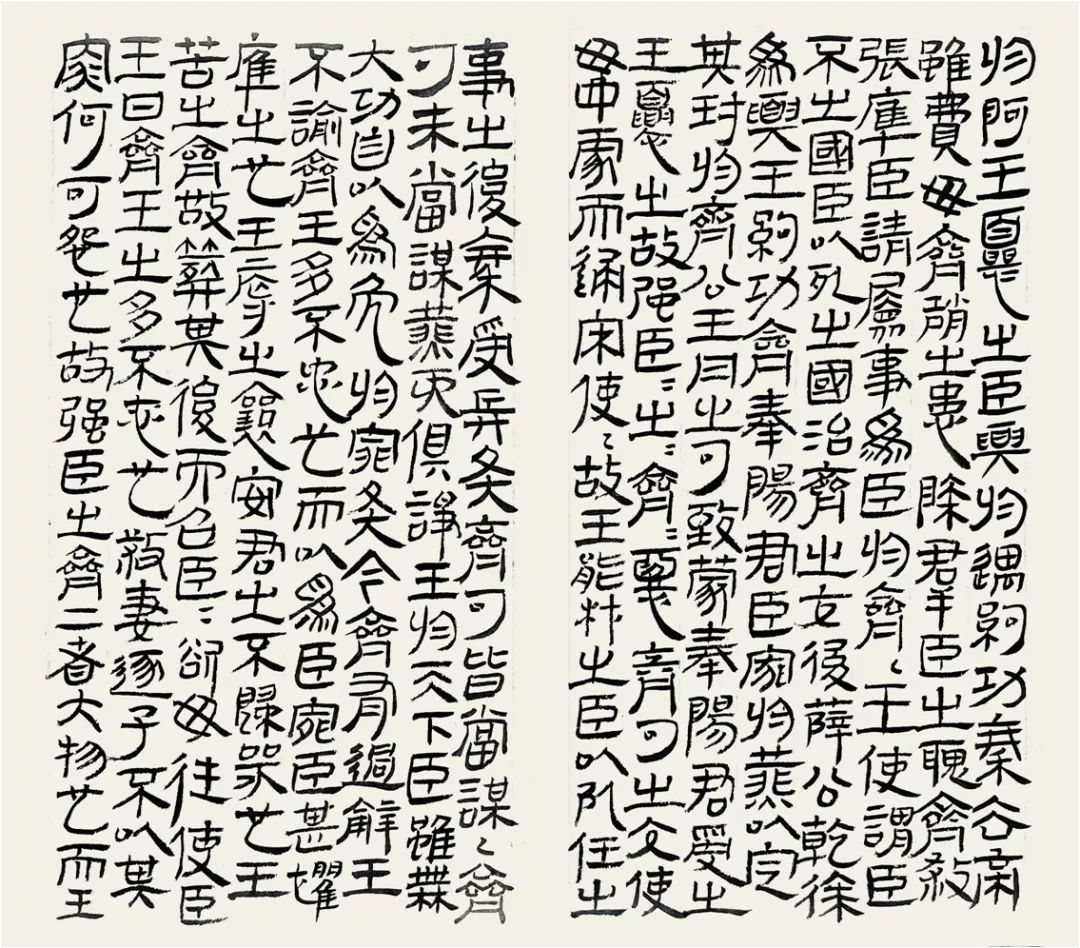 於阿王憂之臣與於遇約功秦去帝
雖費毋齊趙之患除群臣之聭齊殺
張庫臣請屬事為臣於齊〻王使謂臣
不之國臣以死之國治齊之交後薛公乾徐
為與王約功齊奉陽君臣歸於燕以定
其封於齊公王丹之勺致蒙奉陽君受之
王憂之故强臣〻之〻齊〻惡齊勺之交使
毋予蒙而通宋使〻故王能材之臣以死任之
事之後秦受兵矣齊勺皆當謀〻齊
勺未當謀燕而俱諍王於天下臣雖無
大功自以為免於罪矣今齊有過辭王
不諭齊王多不忠也而以為臣罪臣甚懼
庫之死也王辱之襄安君之不歸哭也王
苦之齊改葬其後而召臣〻欲毋往使臣
王曰齊王之多不忠也殺妻逐子不以其
罪何可怨也故强臣之齊二者大物也而王